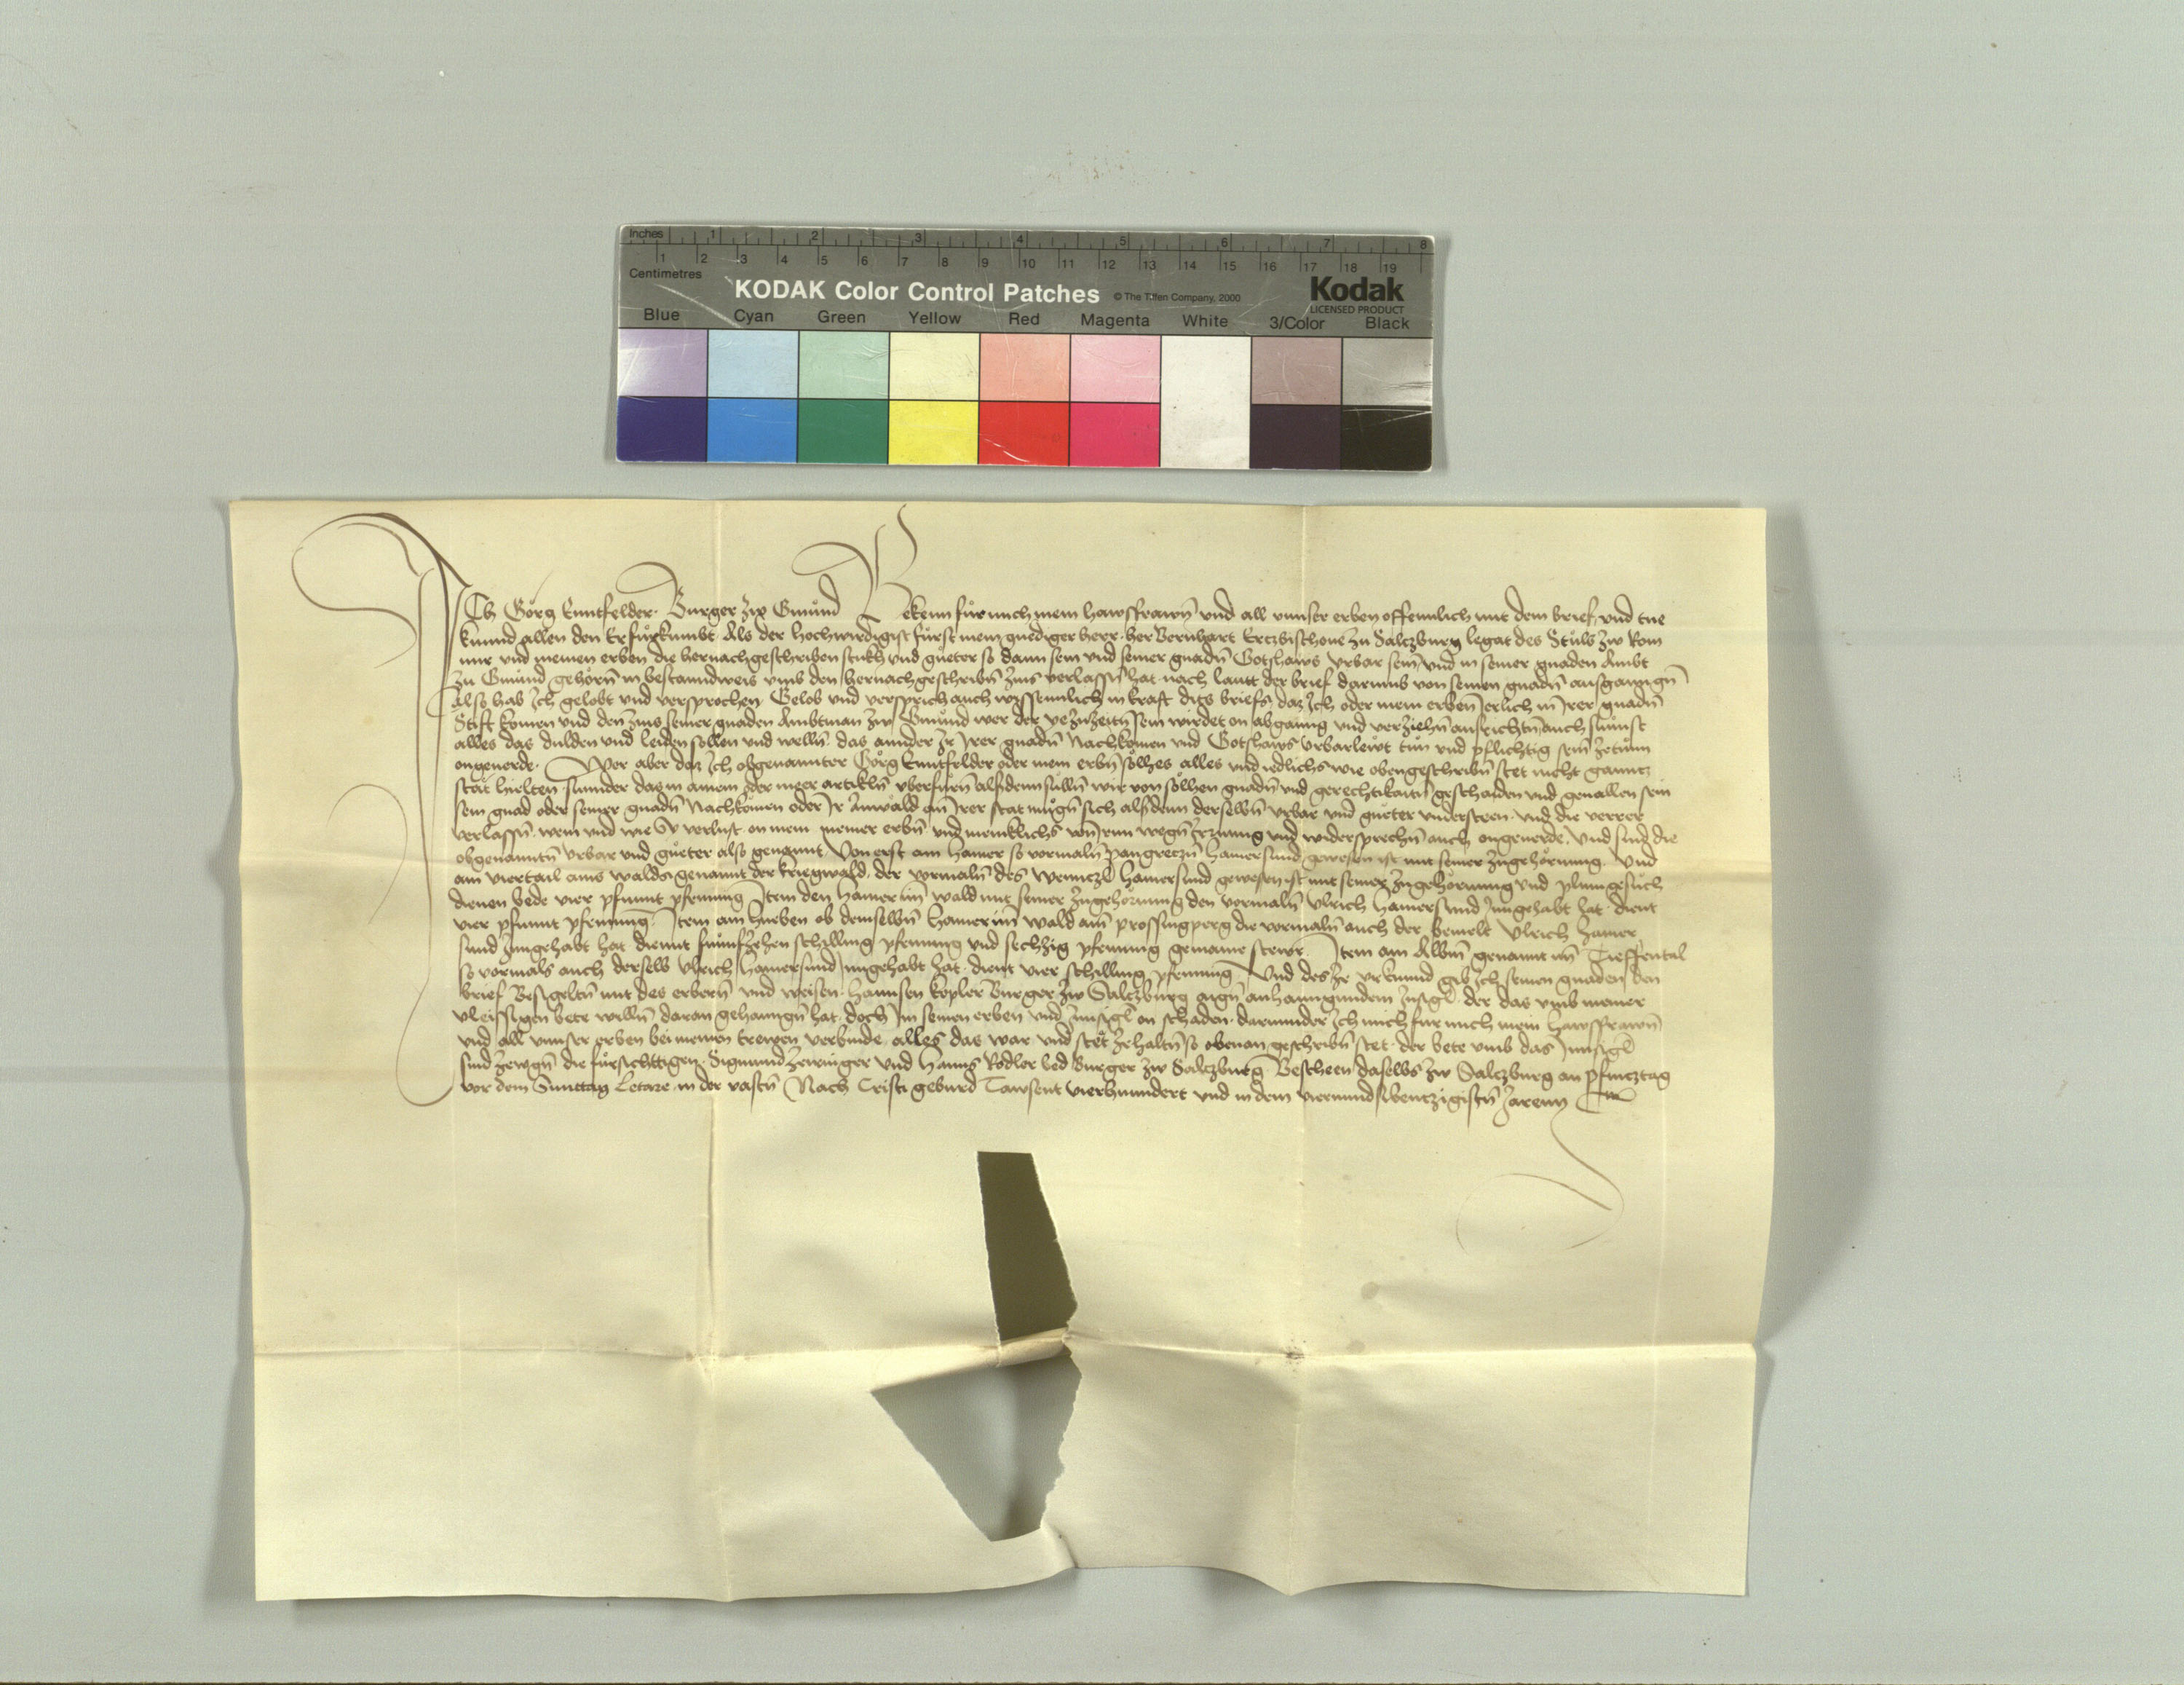 Inches 1 2 3 4 5 6 7 8
1 2 3 4 5 6 7 8 9 10 11 12 13 14 15 16 17 18 19
Centimetres
KODAK Color Control Patches © The Tiffen Company, 2000 Kodak
LICENSED PRODUCT
Blue Cyan Green Yellow Red Magenta White 3/Color Black
ICh Görg Burger zw Gmünd Bekenn für mich mein hawsfrawn̄ vnd all vnnser erben offennlich mit dem brief vnd tue
kunnd allen den Er fürkumbt Als der hochwirdigist fürst mein gnediger herr her Bernhart Ertzbischoue zu Saltzburg legat des Stuls zw Rom
mir vnd meinen erben die hernachgeschriben stukh vnd güeter so dann sein vnd seiner gnadn̄ Gotshaws vrbar sein vnd in seiner gnaden Ambt
zu Gmünd gehörn̄ in bestanndweis vmb den hernachgeschribn̄ zins verlassn̄ hat nach lautt der brief darumb von seinen gnadn̄ ausganngn̄
Also hab Ich gelobt vnd versprochen Gelob vnd versprich auch wissenntlich in kraft ditz briefs daz Ich oder mein erben Jerlich in Irer gnadn̄
Stift komen vnd den zins seiner gnaden Ambtman zw Gmünd wer der ye zuzeitn̄ sein wirdet on abganng vnd verziehn̄ ausrichtn̄ auch sunst
alles das dulden vnd leiden sollen vnd welln̄ das annder Ir Irer gnadn̄ Nachkomen vnd Gotshaws vrbarlewt tun vnd pflichtig sein zetunn
ongeuerde. Wer aber daz Ich obgenannter Görg oder mein erbn̄ solhes alles vnd yedlichs wie obengeschribn̄ stet nicht ganntz
stät hielten sunnder das in ainem oder meer artikln̄ vberfürn̄ alsdenn sülln̄ wir von sölhen gnadn̄ vnd gerechtikaitn̄ geschaiden vnd geuallen sein
sein gnad oder seiner gnadn̄ Nachkömen oder Ir Anwäld an Irer stat mügn̄ sich alsdenn derselbn̄ vrbar vnd güeter vnndersteen vnd die verrer
verlassn̄ wem vnd wie Sy verlust on mein meiner erbn̄ vnd menklichs von vnn wegn̄ Irrung vnd widersprechn̄ auch ongeuerde. Vnd sind die
obgenanntn̄ vrbar vnd güeter also genannt Von erst ain hamer so vormaln̄ Pangretzn̄ hamersmid gewesen ist mit seiner zugehörung. Vnd
ain viertail ains walds genannt der kriegwald der vormaln̄ des Wenntzl hamersmid gewesen ist mit seiner zugehörung vnd plumgesuch
dienen bede vier pfunnt pfenning Item den hamer im wald mit seiner zugehörung den vormaln̄ Vlrich hamersmid Inngehabt hat dient
vier pfunnt pfenning. Item ain hueben ob demselbn̄ hamer im wald am die vormaln̄ auch der bemelt Vlrich hamer
smid Inngehabt hat diennt funnfzehen schilling pfenning vnd sechzig pfenning gemaine stewr. Item ain Albm̄ genannt im Tieffental
so vormals auch derselb Vlrich hamersmid Inngehabt hat dient vier schilling pfenning Vnd des ze vrkunnd gib Ich seinen gnaden den
brief Besigeltn̄ mit des erbern̄ vnd weisen Hannsen kepler Burger zw Saltzburg aign̄ anhanngundem Insigl der das vmb meiner
vleissigen bete willn̄ daran gehanngn̄ hat doch Im seinen erben vnd Innsigl on schaden darunnder Ich mich für mich mein hawsfrawn̄
vnd all vnnser erben bei meinen trewen verbinde alles das war vnd stet zehaltn̄ so obenan geschribn̄ stet der bete vmb das Innsigl
sind zewgn̄ die fürsichttigen Sigmund vnd Hanns Rodler bed Burger zw Saltzburg Bescheen daselbs zw Saltzburg an Pfintztag
vor dem Sunntag Letare in der vastn̄ Nach Cristi geburd Tawsent vierhunndert vnd in dem viervndsibentzigistn̄ Jarenn